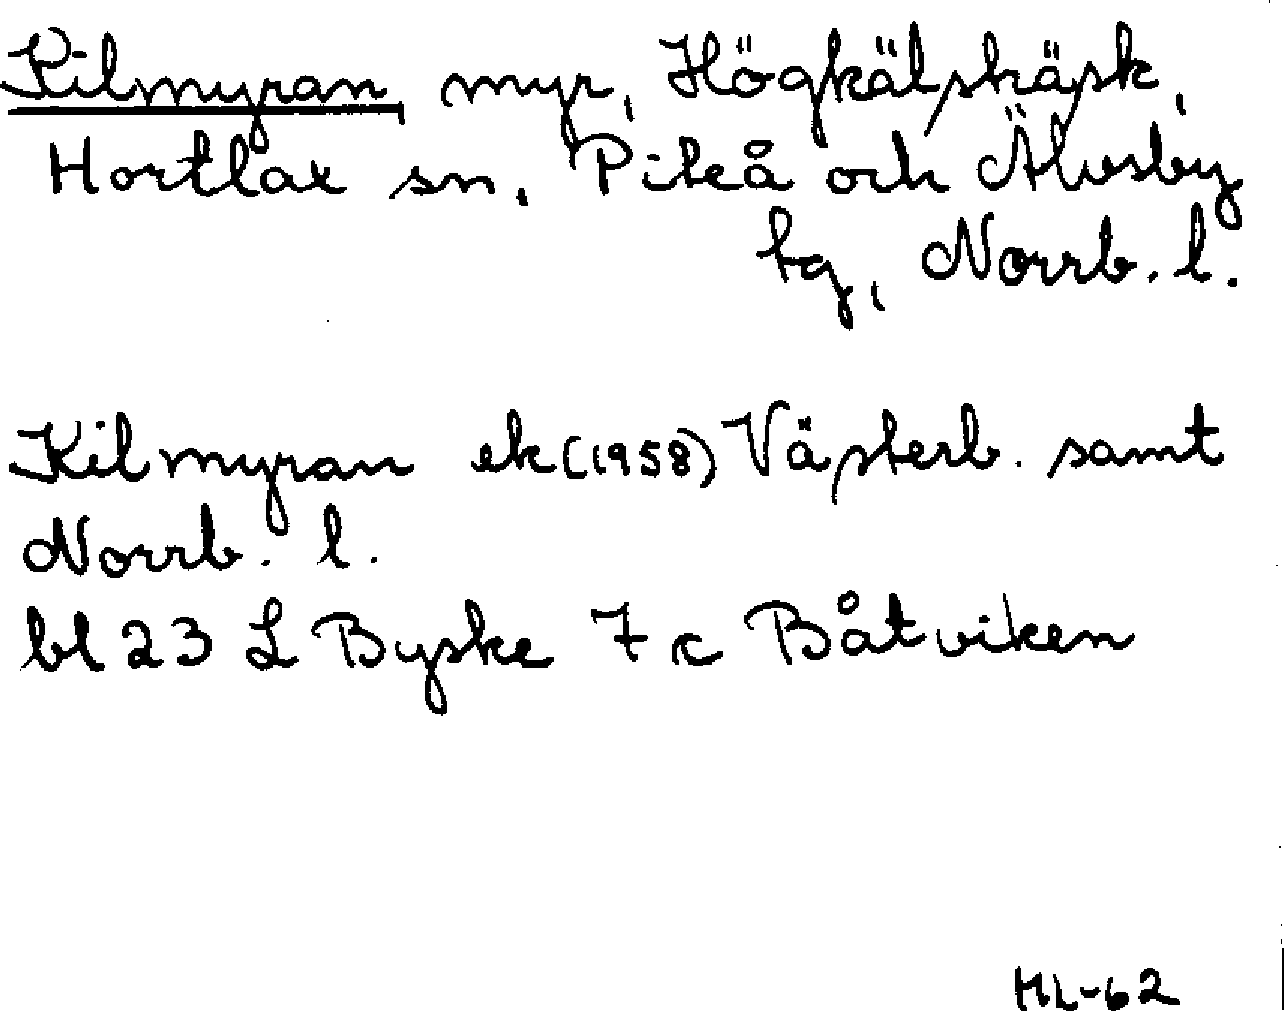 Kilmyran, myr, Högkälskäsk,
Hortlax sn, Piteå och Älvsby
tg, Norrb. l.
Kilmyran ek (1958) Västerb. samt
Norrb. l.
bl 23 L Byske 7 c Båtviken
HL-62